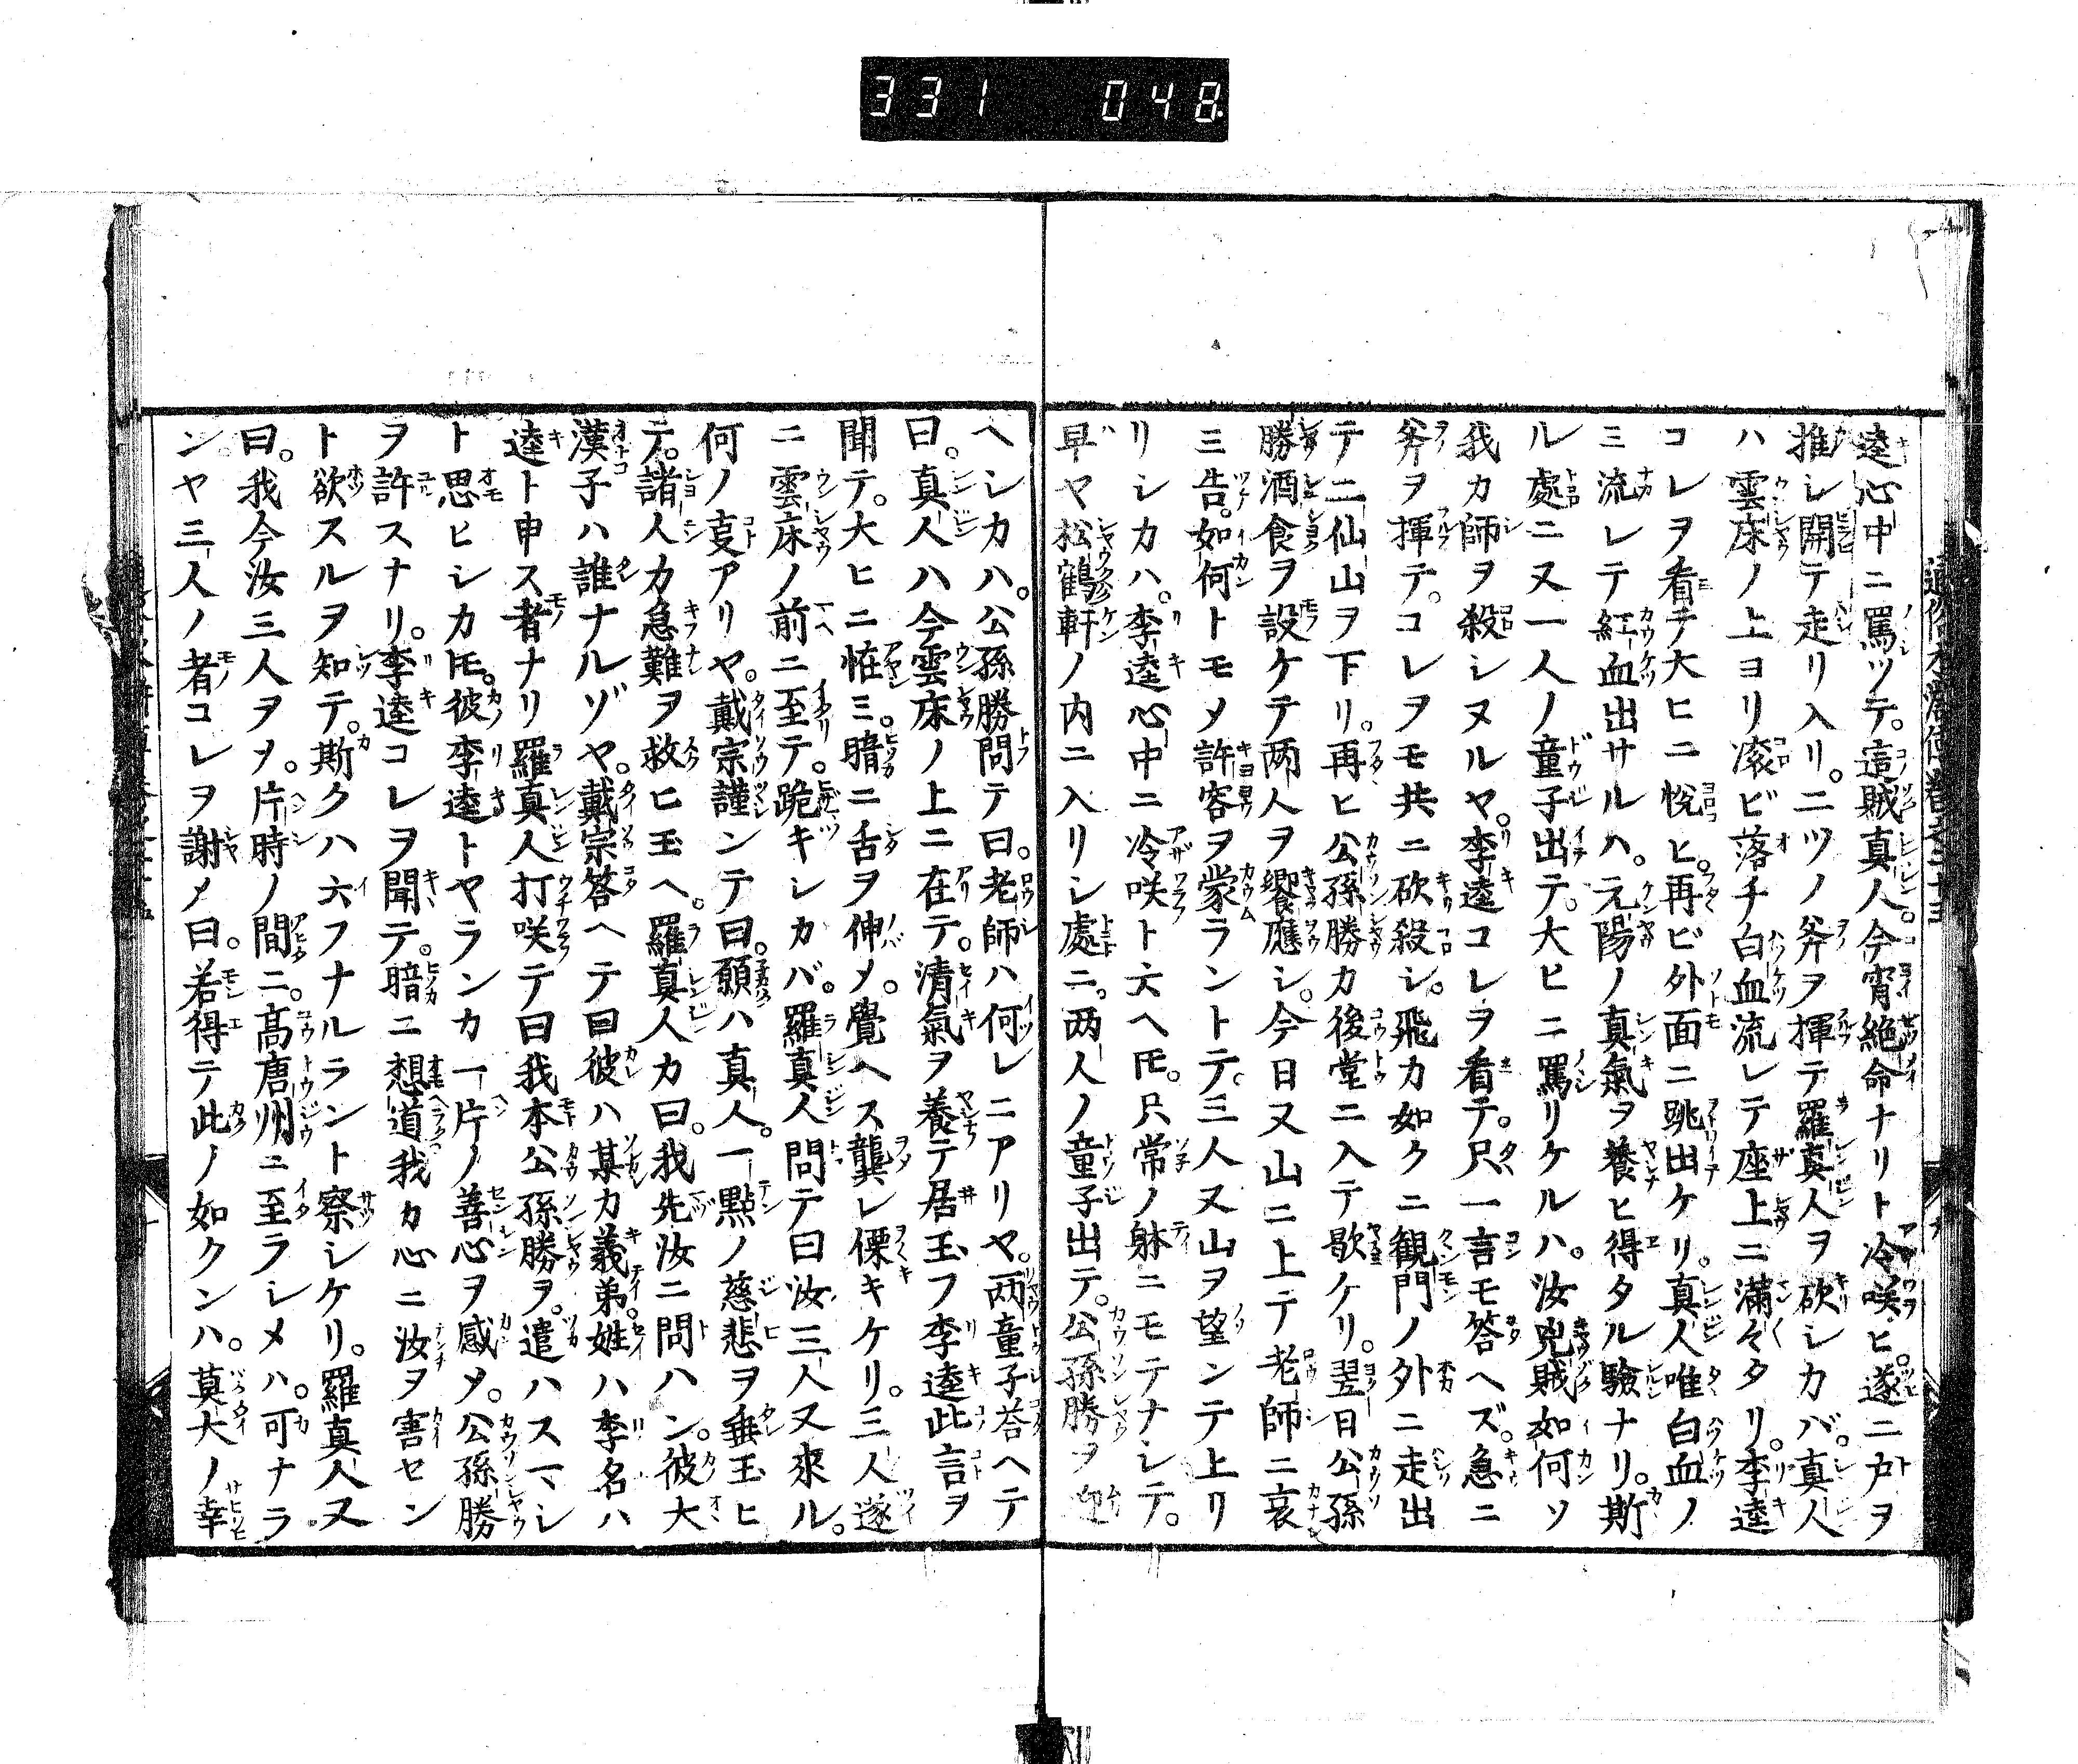 331 048
逵心中ニ罵ツテ。這賊真人。今宵絶命ナリト冷咲ヒ。遂ニ戸ヲ
推シ開テ走リ入リ。二ツノ斧ヲ揮テ羅真人ヲ砍シカバ。真人
ハ雲床ノ上ヨリ滚ビ落チ白血流レテ座上ニ満々タリ。李逵
コレヲ看テ大ヒニ悦ヒ。再ビ外面ニ跳出ケリ。真人唯白血ノ
ミ流レテ紅血出サルハ。元陽ノ真氣ヲ養ヒ得タル驗ナリ。斯
ル處ニ又一人ノ童子出テ。大ヒニ罵リケルハ。汝兇賊如何ソ
我カ師ヲ殺シヌルヤ。李逵コレヲ看テ。只一言モ答ヘズ。急ニ
斧ヲ揮テ。コレヲモ共ニ砍殺シ。飛カ如クニ観門ノ外ニ走出
テ二仙山ヲ下リ。再ヒ公孫勝カ後堂ニ入テ歇ケリ。翌日公孫
勝酒食ヲ設ケテ两人ヲ饗應シ。今日又山ニ上テ老師ニ哀
ミ告。如何トモメ許容ヲ蒙ラントテ。三人又山ヲ望ンテ上リ
リシカハ。李逵心中ニ冷咲ト云ヘ𪜈。只常ノ躰ニモテナシテ。
早ヤ松鶴軒ノ内ニ入リシ處ニ。两人ノ童子出テ。公孫勝ヲ迎
ヘシカハ。公孫勝問テ曰。老師ハ何レニアリヤ。两童子荅ヘテ
曰。真人ハ今雲床ノ上ニ在テ。清氣ヲ養テ居玉フ李逵此言ヲ
聞テ。大ヒニ恠ミ。暗ニ舌ヲ伸メ。覺ヘス龔レ慄キケリ。三人遂
ニ雲床ノ前ニ至テ。跪キシカバ。羅真人問テ曰汝三人又來ル。
何ノ叓アリヤ。戴宗謹ンテ曰。願ハ真人。一點ノ慈悲ヲ垂玉ヒ
テ。諸人カ急難ヲ救ヒ玉ヘ。羅真人カ曰。我先汝ニ問ハン。彼大
漢子ハ誰ナルゾヤ。戴宗答ヘテ曰彼ハ某カ義弟。姓ハ李名ハ
逵ト申ス者ナリ羅真人打咲テ曰我本公孫勝ヲ。遣ハスマシ
ト思ヒシカ𪜈。彼李逵トヤランカ一片ノ善心ヲ感メ。公孫勝
ヲ許スナリ。李逵コレヲ聞テ。暗ニ想道我カ心ニ汝ヲ害セン
ト欲スルヲ知テ。斯クハ云フナルラント察シケリ。羅真人又
曰。我今汝三人ヲメ。片時ノ間ニ。髙唐州ニ至ラシメハ。可ナラ
ンヤ三人ノ者コレヲ謝メ曰。若得テ此ノ如クンハ。莫大ノ幸